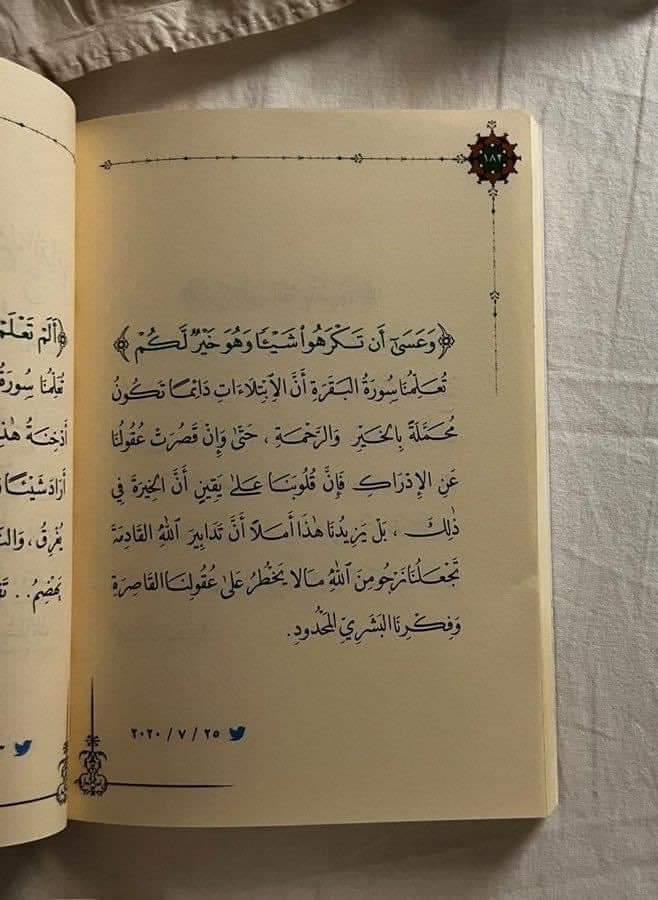 ١٨٢
﴿وَعَسَىٰٓ أَن تَكْرَهُوا۟ شَيْـًٔا وَهُوَ خَيْرٌ لَّكُمْ﴾
تُعَلِّمُنَا سُورَةُ البَقَرَةِ أَنَّ الاِبْتِلَاءَاتِ دَائِمًا تَكُونُ
مُحَمَّلَةً بِالخَيْرِ وَالرَّحْمَةِ ، حَتَّىٰ وَإِنْ قَصُرَتْ عُقُولُنَا
عَنِ الإِدْرَاكِ فَإِنَّ قُلُوبَنَا عَلَىٰ يَقِينٍ أَنَّ الخِيرَةَ فِي
ذٰلِكَ ، بَلْ يَزِيدُنَا هٰذَا أَمَلًا أَنَّ تَدَابِيرَ اللهِ القَادِمَةَ
تَجْعَلُنَا نَرْجُو مِنَ اللهِ مَا لَا يَخْطُرُ عَلَىٰ عُقُولِنَا القَاصِرَةِ
وَفِكْرِنَا البَشَرِيِّ المَحْدُودِ.
٢٥ / ٧ / ٢٠٢٠
﴿أَلَمْ تَعْلَمْ
تُعَلِّمُنَا سُورَةُ
أَدْخِنَةُ هٰذِ
أَرَادَ شَيْئًا
يُغْرِقُ ، وَال
يَهْضِمُ . .